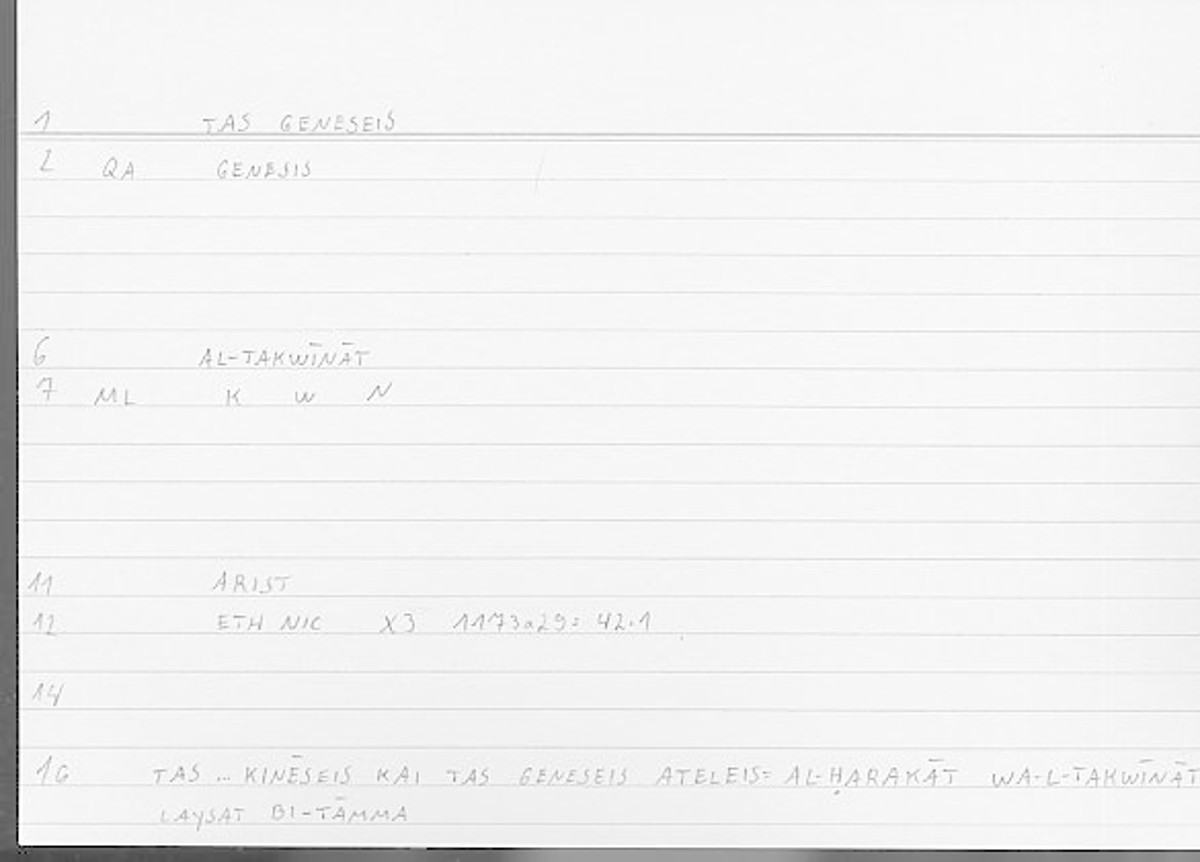 1 TAS GENESEIS
2 QA GENESIS
6 AL-TAKWĪNĀT
7 ML K W N
11 ARIST
12 ETH NIC X3 1173a29: 42.1
14
16 TAS ... KINĒSEIS KAI TAS GENESEIS ATELEIS= AL-ḤARAKĀT WA-L-TAKWĪNĀT
LAYSAT BI-TĀMMA